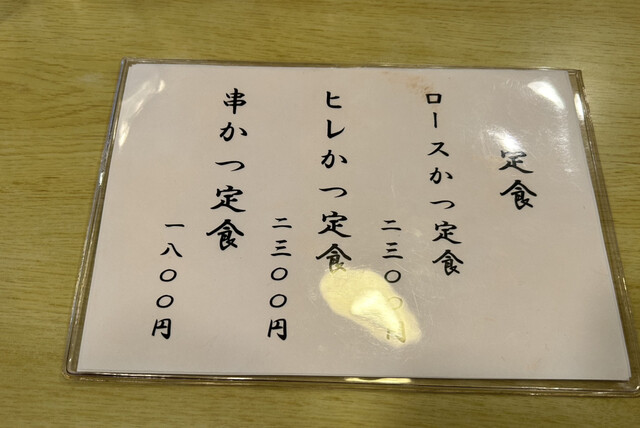 定食
ロースかつ定食
二三〇〇円
ヒレかつ定食
二三〇〇円
串かつ定食
一八〇〇円